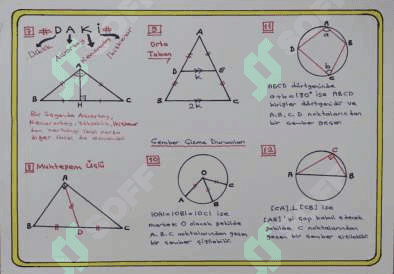 7 #DAKİ#
Diklik
Açıortay
Kenarortay
İkizkenar
A
B H C
Bir üçgende Açıortay,
Kenarortay, Yükseklik, İkizkenar
dan herhangi ikisi varsa
diğer ikisi de
8 Muhteşem Üçlü
A
B D C
9
Orta
Taban
A
D K E
B 2K C
Çember Çizme Durumları
10
O
A B C
|OA|=|OB|=|OC| ise
merkezi O olacak şekilde
A, B, C noktalarından geçen
bir çember çizilebilir.
11
A
a
D B
b
C
ABCD dörtgeninde
a+b=180° ise ABCD
kirişler dörtgenidir ve
A, B, C, D noktalarından
bir çember geçer
12
C
A B
[CA]⊥[CB] ise
[AB]'yi çap kabul edecek
şekilde C noktalarından
geçen bir çember çizilebilir